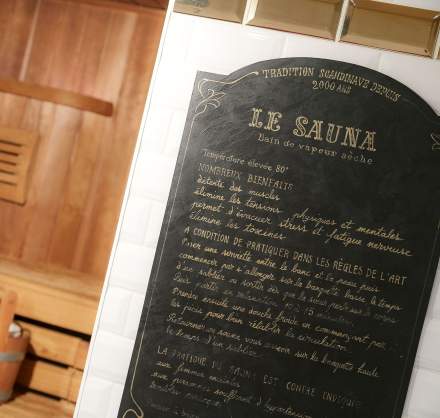 TRADITION SCANDINAVE DEPUIS
2000 ANS
LE SAUNA
Bain de vapeur sèche
Température élevée 80°
NOMBREUX BIENFAITS
détente des muscles
élimine les tensions physiques et mentales
permet d'évacuer stress et fatigue nerveuse
élimine les toxines
A CONDITION DE PRATIQUER DANS LES RÈGLES DE L'ART
Poser une serviette entre le banc et la peau puis
commencer par s'allonger sur la banquette basse le temps
d'un sablier ou sortir dès que la
15 minutes
Prendre ensuite une douche froide en commençant par
les pieds pour bien rétablir la circulation
Retournez au sauna vous asseoir sur la banquette haute
le temps d'un sablier
LA PRATIQUE DU SAUNA EST CONTRE INDIQUÉE
aux femmes enceintes
aux personnes souffrant d'hypertension